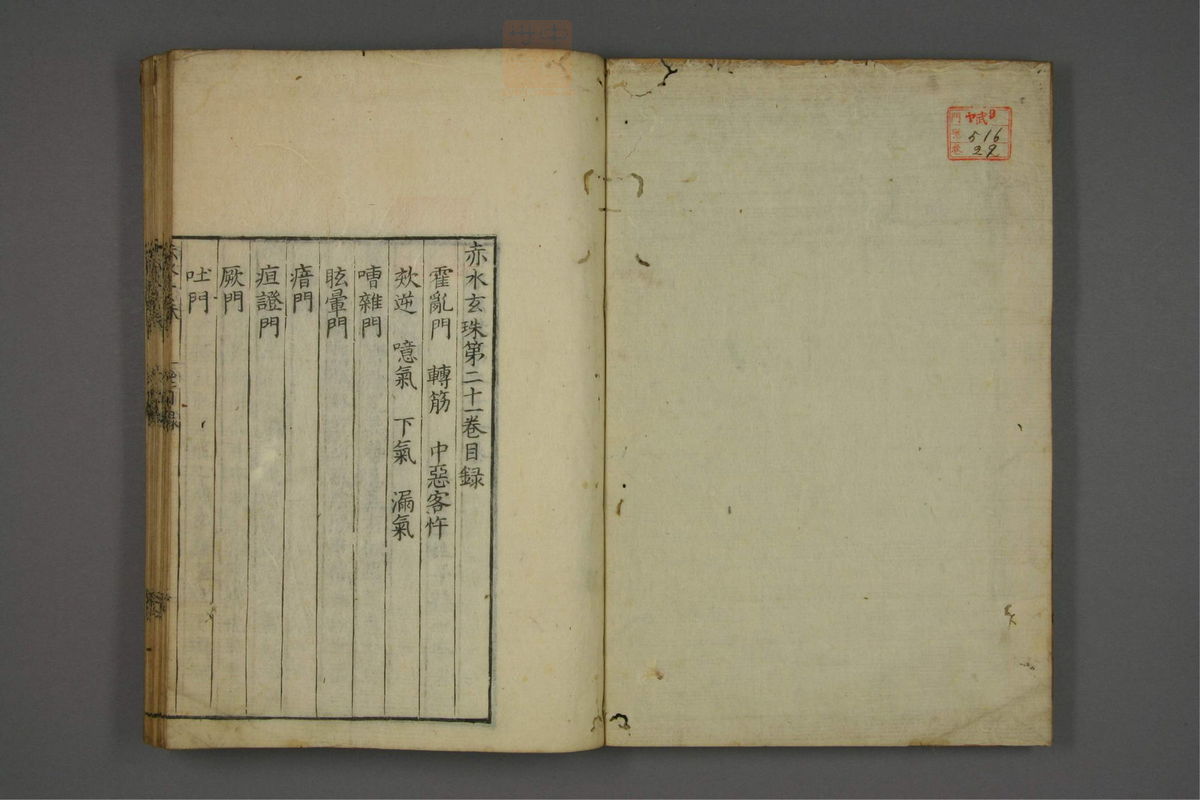 赤水玄珠第二十一卷目録
霍亂門 轉筋 中惡客忤
欬逆 噫氣 下氣 漏氣
嘈雜門
眩暈門
瘖門
疸證門
厥門
吐門
門
5 16
29